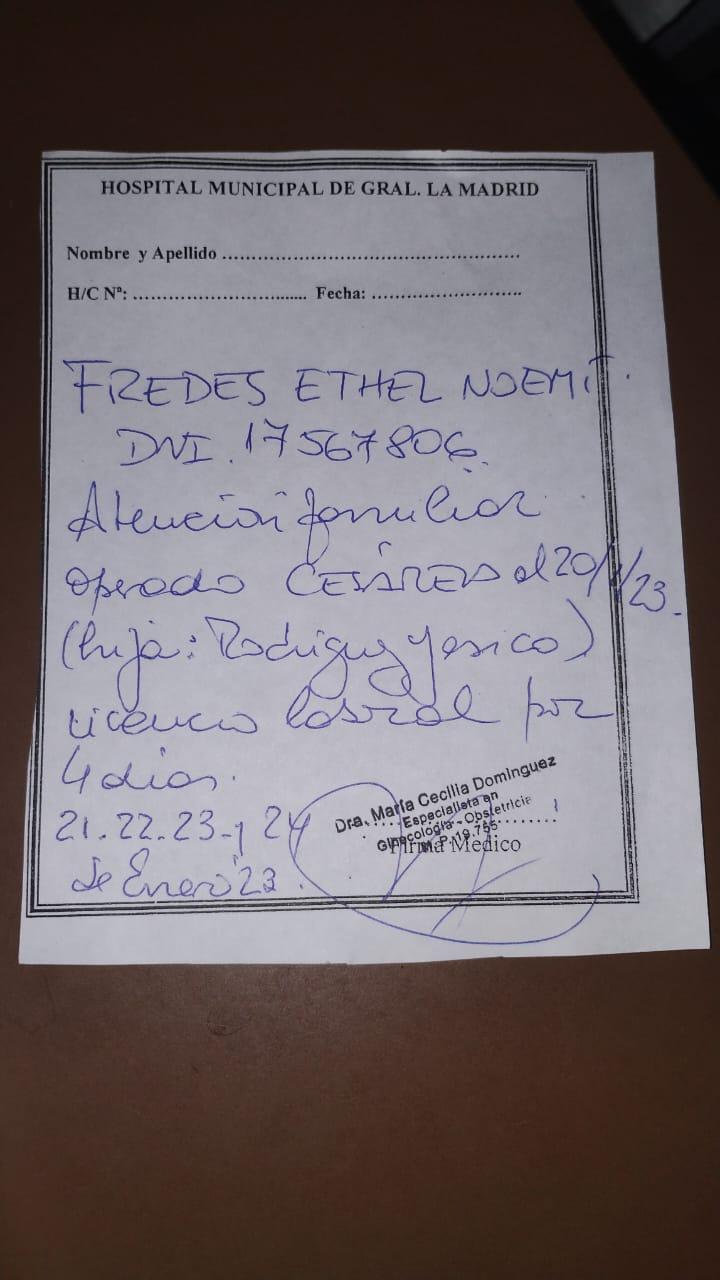 HOSPITAL MUNICIPAL DE GRAL. LA MADRID
Nombre y Apellido ........................................................
H/C Nº: ............................... Fecha: ...........................
FREDES ETHEL NOEMÍ.
DNI. 17567806.
Atención familiar
operada CESÁREA el 20/1/23.
(hija: Rodriguez Yesica)
Licencia laboral por
4 días.
21. 22. 23 y 24
de Enero '23.
Dra. María Cecilia Dominguez
Especialista en
Ginecología - Obstetricia
M.P. 19.755
Firma Médico